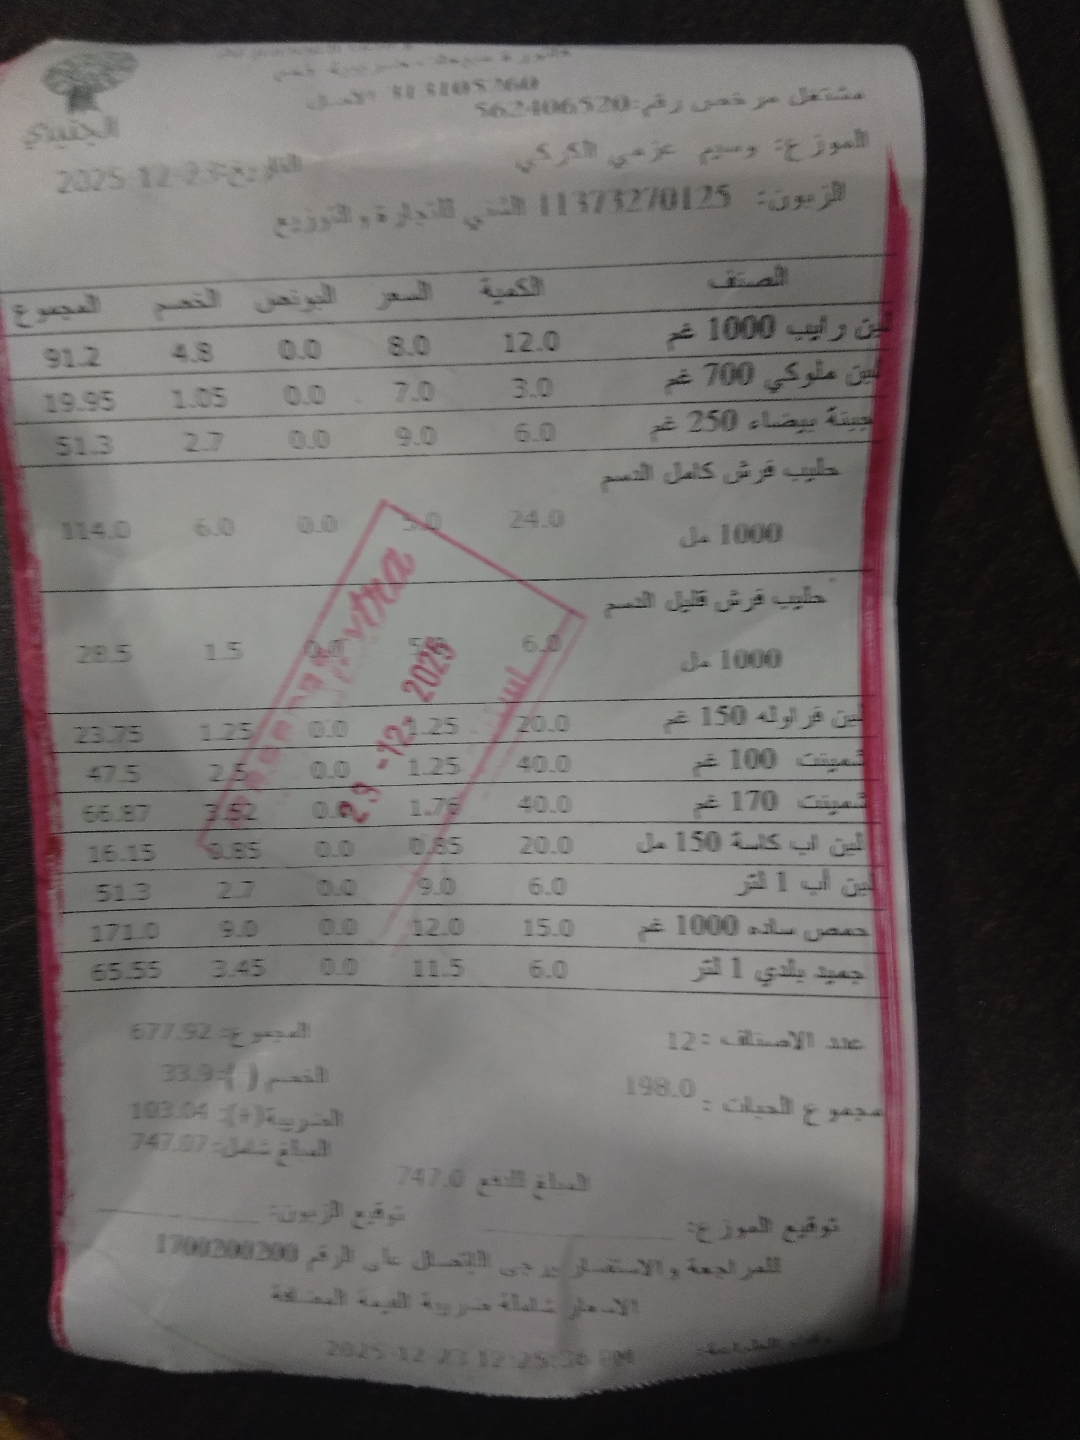 الجنيدي
مشتغل مرخص رقم:562406520
الموزع: وسيم عزمي الكركي
التاريخ:23-12-2025
الزبون: 11373270125 الشني للتجارة والتوزيع
الصنف الكمية السعر البونص الخصم المجموع
لبن رايب 1000 غم 12.0 8.0 0.0 4.8 91.2
لبن ملوكي 700 غم 3.0 7.0 0.0 1.05 19.95
جبنة بيضاء 250 غم 6.0 9.0 0.0 2.7 51.3
حليب فرش كامل الدسم
1000 مل 24.0 5.0 0.0 6.0 114.0
حليب فرش قليل الدسم
1000 مل 6.0 0.0 1.5 28.5
لبن فراوله 150 غم 20.0 1.25 0.0 1.25 23.75
شمينت 100 غم 40.0 1.25 0.0 2.5 47.5
شمينت 170 غم 40.0 1.76 0.0 3.52 66.87
لبن اب كاسة 150 مل 20.0 0.85 0.0 0.85 16.15
لبن أب 1 لتر 6.0 9.0 0.0 2.7 51.3
حمص ساده 1000 غم 15.0 12.0 0.0 9.0 171.0
جميد بلدي 1 لتر 6.0 11.5 0.0 3.45 65.55
29 -12- 2025
عدد الاصناف : 12
المجموع: 677.92
مجموع الحبات : 198.0
الخصم( ): 33.9
الضريبة(+): 103.04
المبلغ شامل: 747.07
المبلغ للدفع 747.0
توقيع الموزع: توقيع الزبون:
للمراجعة والاستفسار يرجى الاتصال على الرقم 1700200200
الاسعار شاملة ضريبة القيمة المضافة
2025-12-23 12:25:36 PM